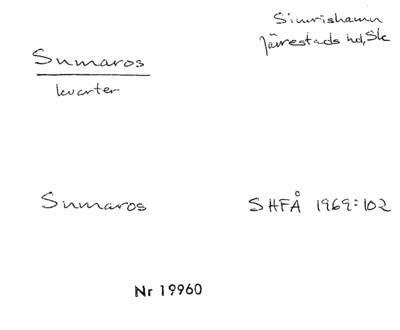 Simrishamn
Järrestads hd, Sk
Sumaros
kvarter
Sumaros
SHFÅ 1969:102
Nr 19960